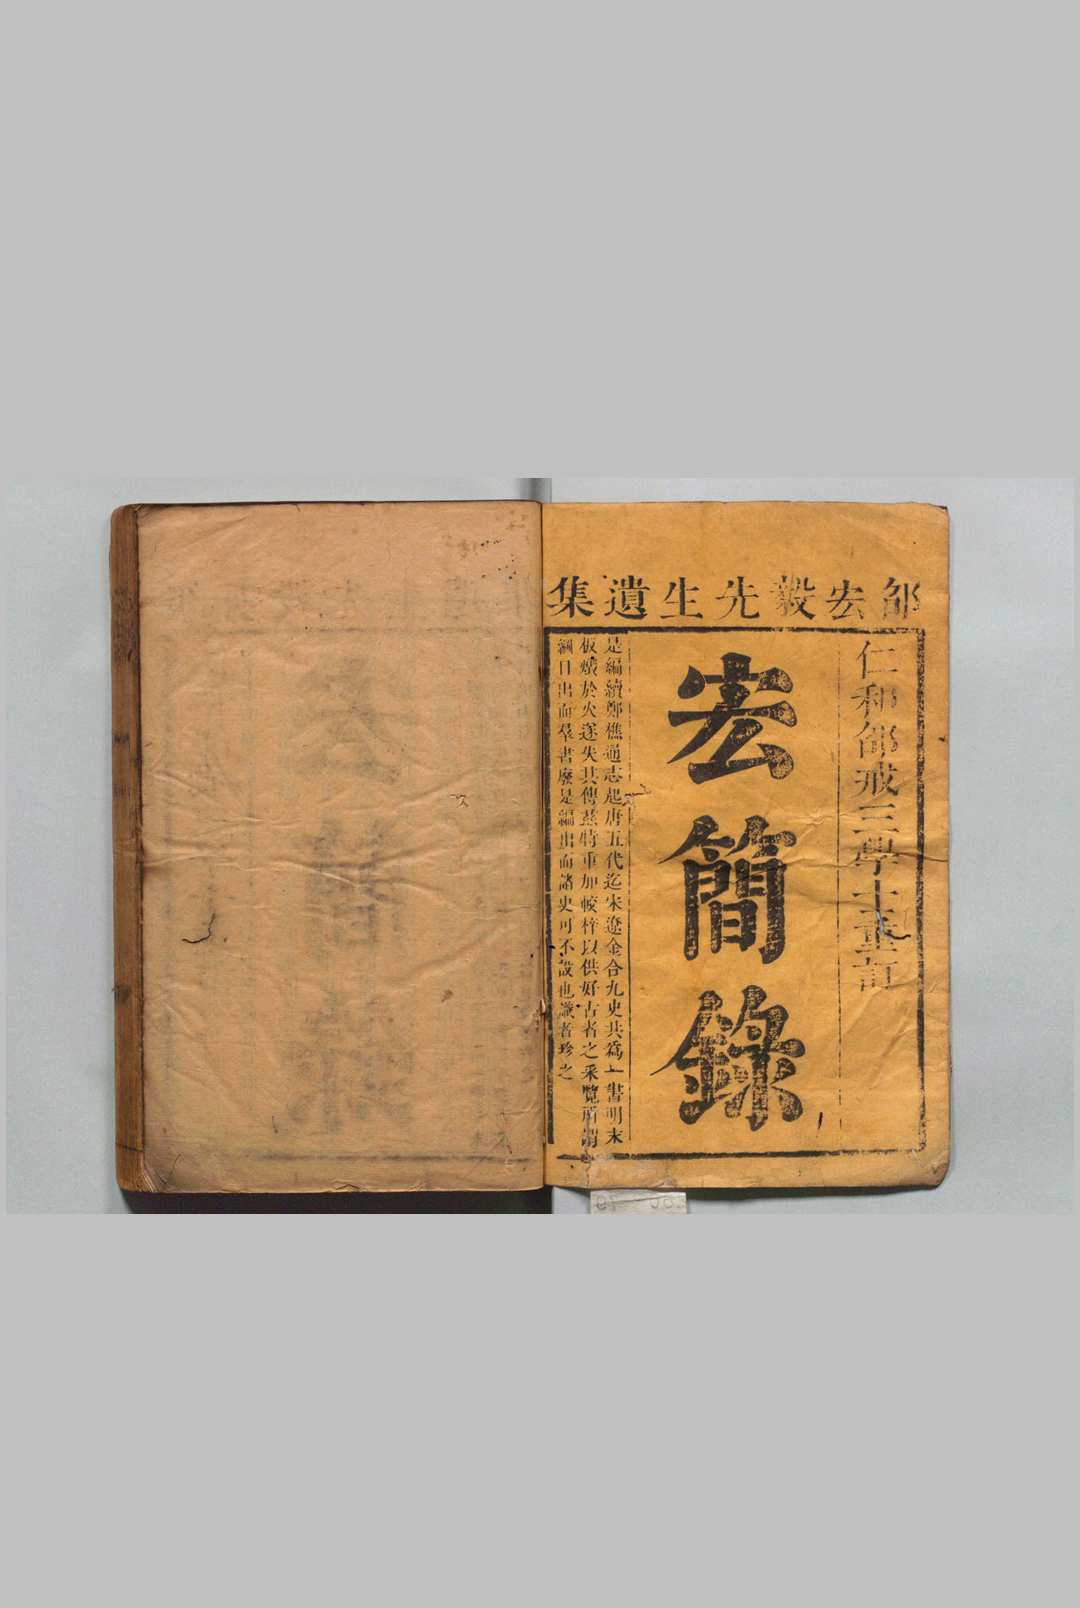 邵宏毅先生遺集
仁和邵戒三學士重訂
宏簡錄
是編續鄭樵通志起唐五代迄宋遼金合九史共爲一書明末
板燬於火遂失其傳茲特重加較梓以供好古者之采覽所謂
綱目出而羣書廢是編出而諸史可不設也識者珍之